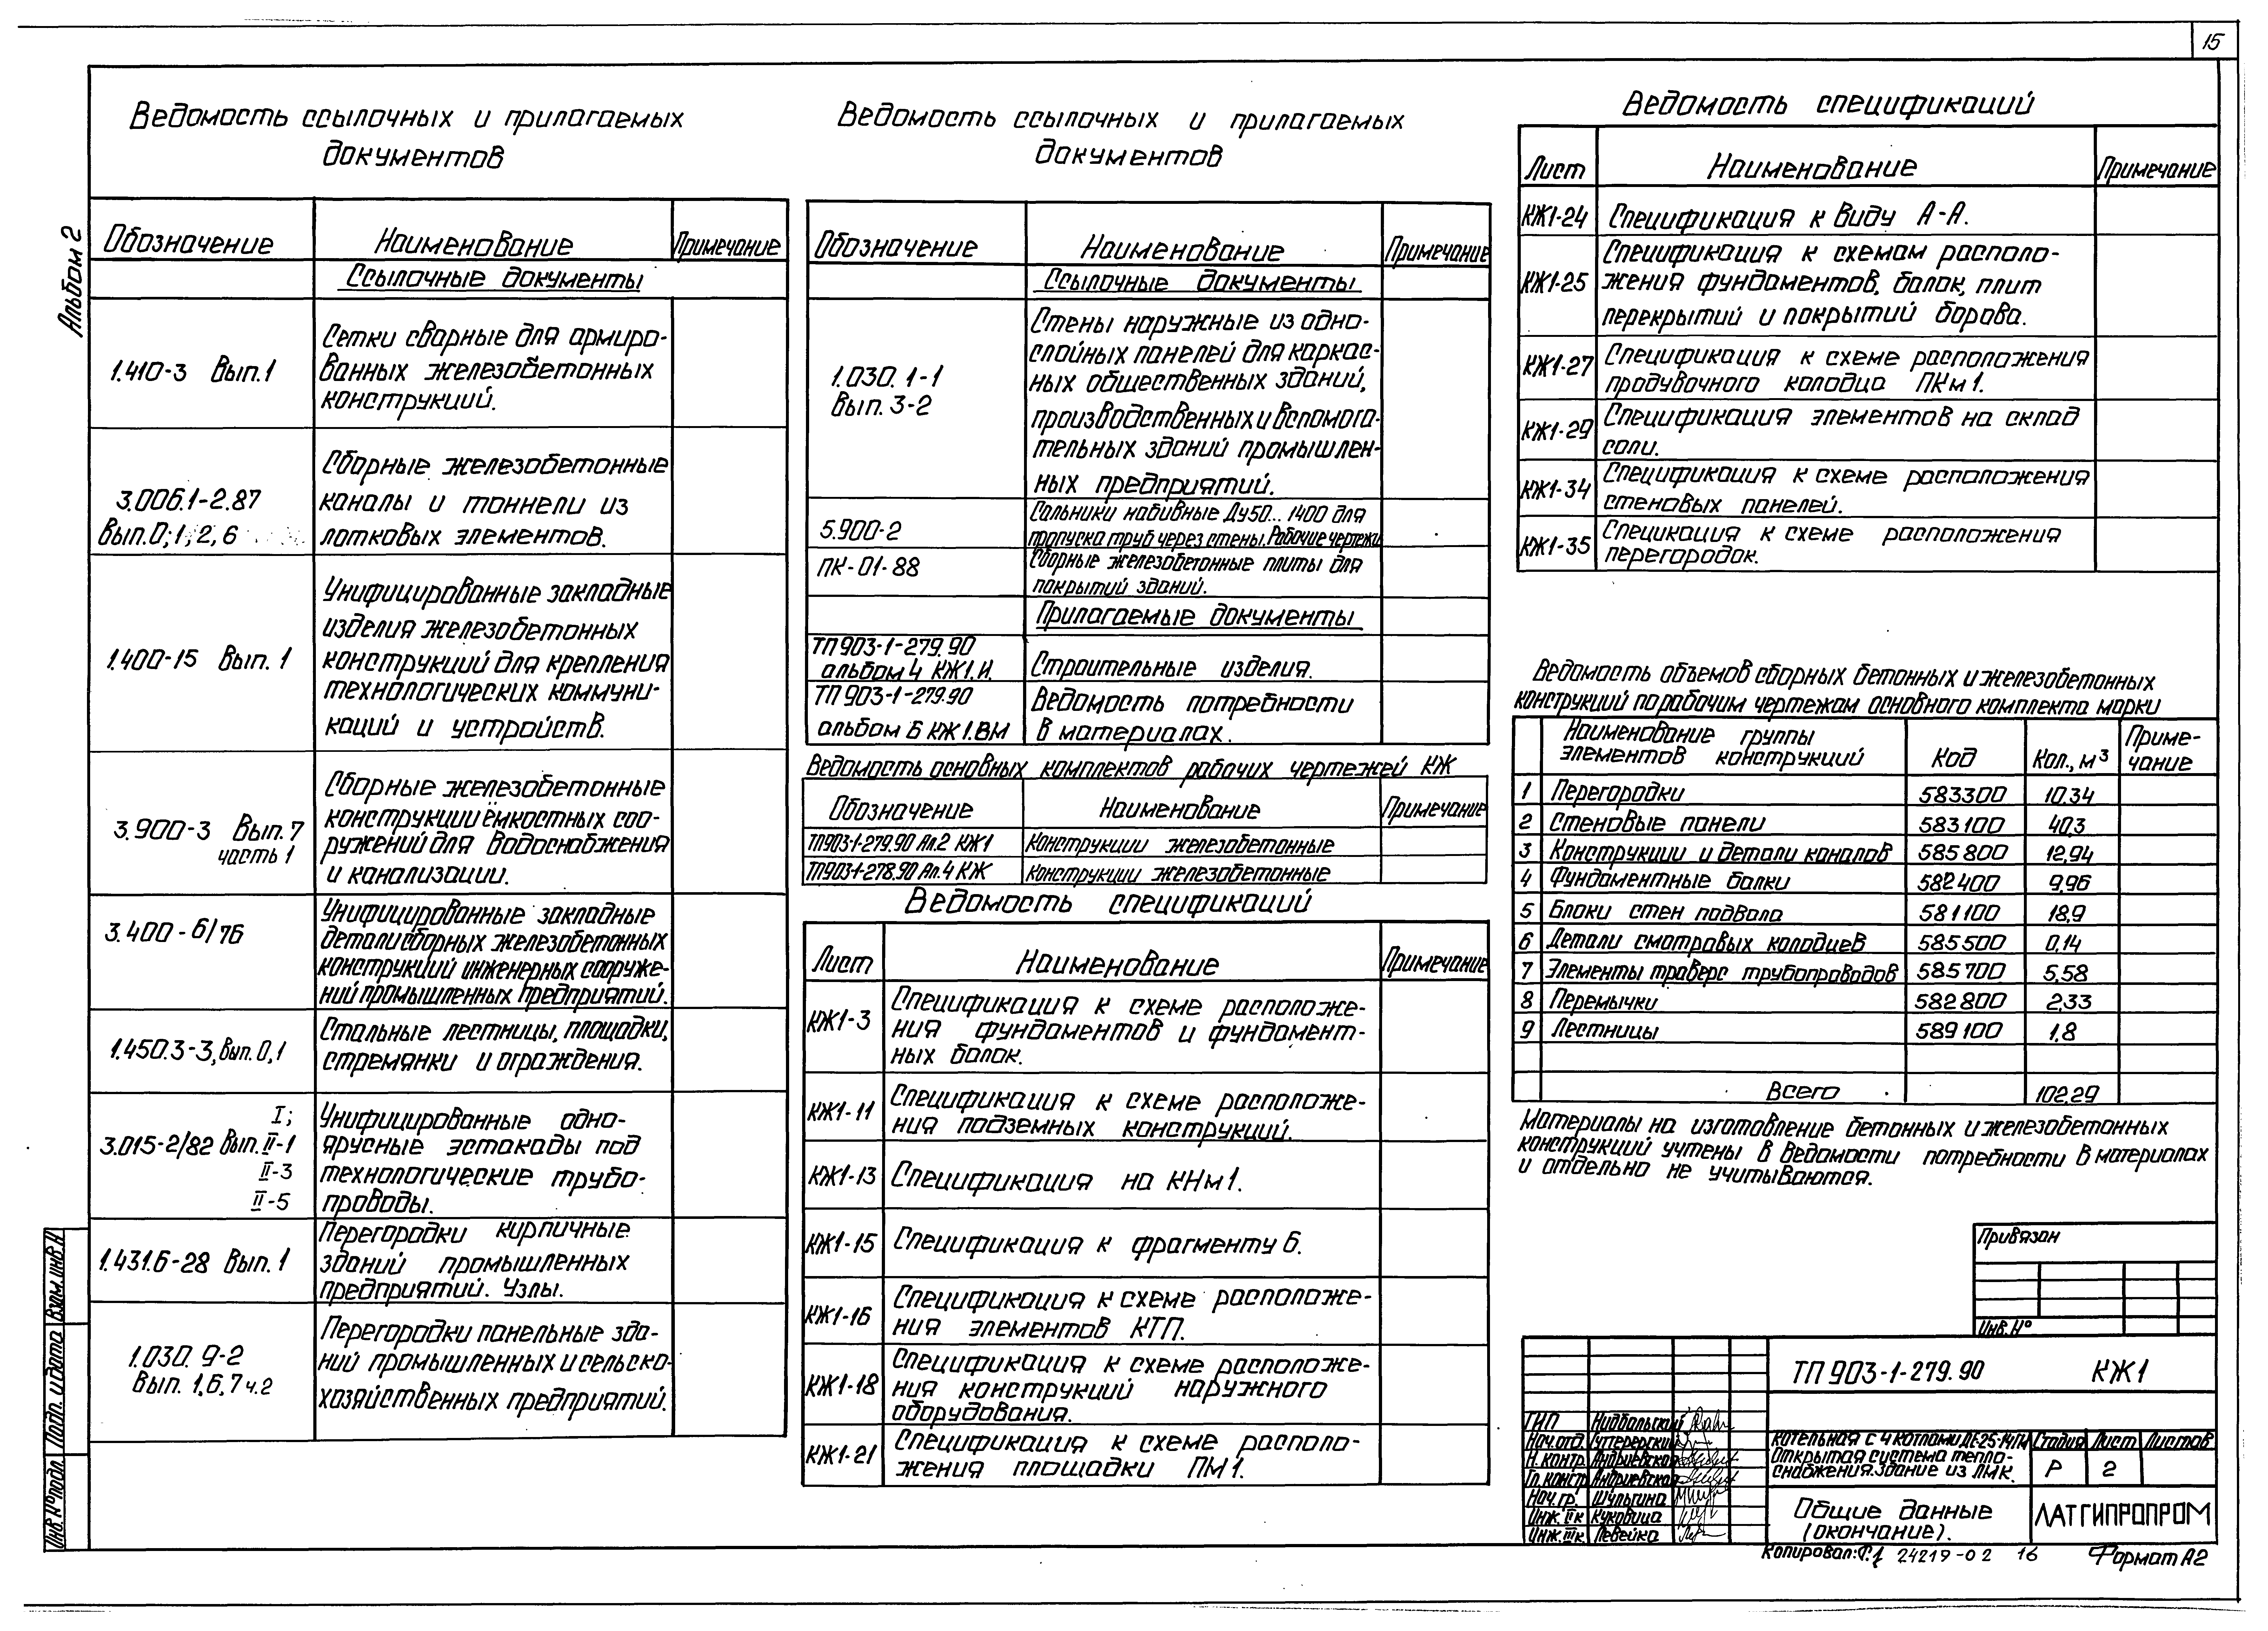 15
Альбом 2
Ведомость ссылочных и прилагаемых
документов
Обозначение Наименование Примечание
Ссылочные документы
1.410-3 Вып.1
Сетки сварные для армиро-
ванных железобетонных
конструкций.
3.006.1-2.87
Вып.0;1;2,6
Сборные железобетонные
каналы и тоннели из
лотковых элементов.
1.400-15 Вып. 1
Унифицированные закладные
изделия железобетонных
конструкций для крепления
технологических коммуни-
каций и устройств.
3.900-3 Вып. 7
часть 1
Сборные железобетонные
конструкции ёмкостных соо-
ружений для водоснабжения
и канализации.
3.400-6/76
Унифицированные закладные
детали сборных железобетонных
конструкций инженерных сооруже-
ний промышленных предприятий.
1.450.3-3, Вып. 0,1
Стальные лестницы, площадки,
стремянки и ограждения.
I;
3.015-2/82 Вып. II-1
II-3
II-5
Унифицированные одно-
ярусные эстакады под
технологические трубо-
проводы.
1.431.6-28 Вып. 1
Перегородки кирпичные
зданий промышленных
предприятий. Узлы.
1.030. 9-2
Вып. 1,6,7 ч.2
Перегородки панельные зда-
ний промышленных и сельско-
хозяйственных предприятий.
Ведомость ссылочных и прилагаемых
документов
Обозначение Наименование Примечание
Ссылочные документы
1.030. 1-1
Вып. 3-2
Стены наружные из одно-
слойных панелей для каркас-
ных общественных зданий,
производственных и вспомога-
тельных зданий промышлен-
ных предприятий.
5.900-2
Сальники набивные Ду50... 1400 для
пропуска труб через стены. Рабочие чертежи
ПК-01-88
Сборные железобетонные плиты для
покрытий зданий.
Прилагаемые документы
ТП 903-1-279.90
альбом 4 КЖ1.И.
Строительные изделия.
ТП 903-1-279.90
альбом 6 КЖ1.ВМ
Ведомость потребности
в материалах.
Ведомость основных комплектов рабочих чертежей КЖ
Обозначение Наименование Примечание
ТП903-1-279.90 Ал.2 КЖ1 Конструкции железобетонные
ТП903-1-278.90 Ал.4 КЖ Конструкции железобетонные
Ведомость спецификаций
Лист Наименование Примечание
КЖ1-3
Спецификация к схеме расположе-
ния фундаментов и фундамент-
ных балок.
КЖ1-11
Спецификация к схеме расположе-
ния подземных конструкций.
КЖ1-13 Спецификация на КНм1.
КЖ1-15 Спецификация к фрагменту 6.
КЖ1-16
Спецификация к схеме расположе-
ния элементов КТП.
КЖ1-18
Спецификация к схеме расположе-
ния конструкций наружного
оборудования.
КЖ1-21
Спецификация к схеме располо-
жения площадки ПМ1.
Ведомость спецификаций
Лист Наименование Примечание
КЖ1-24 Спецификация к виду А-А.
КЖ1-25
Спецификация к схемам располо-
жения фундаментов, балок, плит
перекрытий и покрытий борова.
КЖ1-27
Спецификация к схеме расположения
продувочного колодца ПКм1.
КЖ1-29
Спецификация элементов на склад
соли.
КЖ1-34
Спецификация к схеме расположения
стеновых панелей.
КЖ1-35
Специкация к схеме расположения
перегородок.
Ведомость объемов сборных бетонных и железобетонных
конструкций по рабочим чертежам основного комплекта марки
Наименование группы
элементов конструкций Код Кол., м³ Приме-
чание
1 Перегородки 583300 10.34
2 Стеновые панели 583100 40,3
3 Конструкции и детали каналов 585800 12,94
4 Фундаментные балки 582400 9,96
5 Блоки стен подвала 581100 18,9
6 Детали смотровых колодцев 585500 0,14
7 Элементы траверс трубопроводов 585700 5,58
8 Перемычки 582800 2,33
9 Лестницы 589100 1,8
Всего 102,29
Материалы на изготовление бетонных и железобетонных
конструкций учтены в ведомости потребности в материалах
и отдельно не учитываются.
Привязан
Инв. №
ТП 903-1-279.90 КЖ1
ГИП Нидбальский
Нач.отд. Гуттерерский
Н. контр. Андриевская
Гл. констр Андриевская
Нач. гр. Шульгина
Инж. II к Куковица
Инж. III к. Левейка
Котельная с 4 котлами ДЕ-25-14ГМ
Открытая система тепло-
снабжения. Здание из ЛМК.
Стадия Лист Листов
Р 2
Общие данные
(окончание).
ЛАТГИПРОПРОМ
Копировал: 24219-02 16 Формат А2
Инв. № подл. Подп. и дата Взам. инв. №